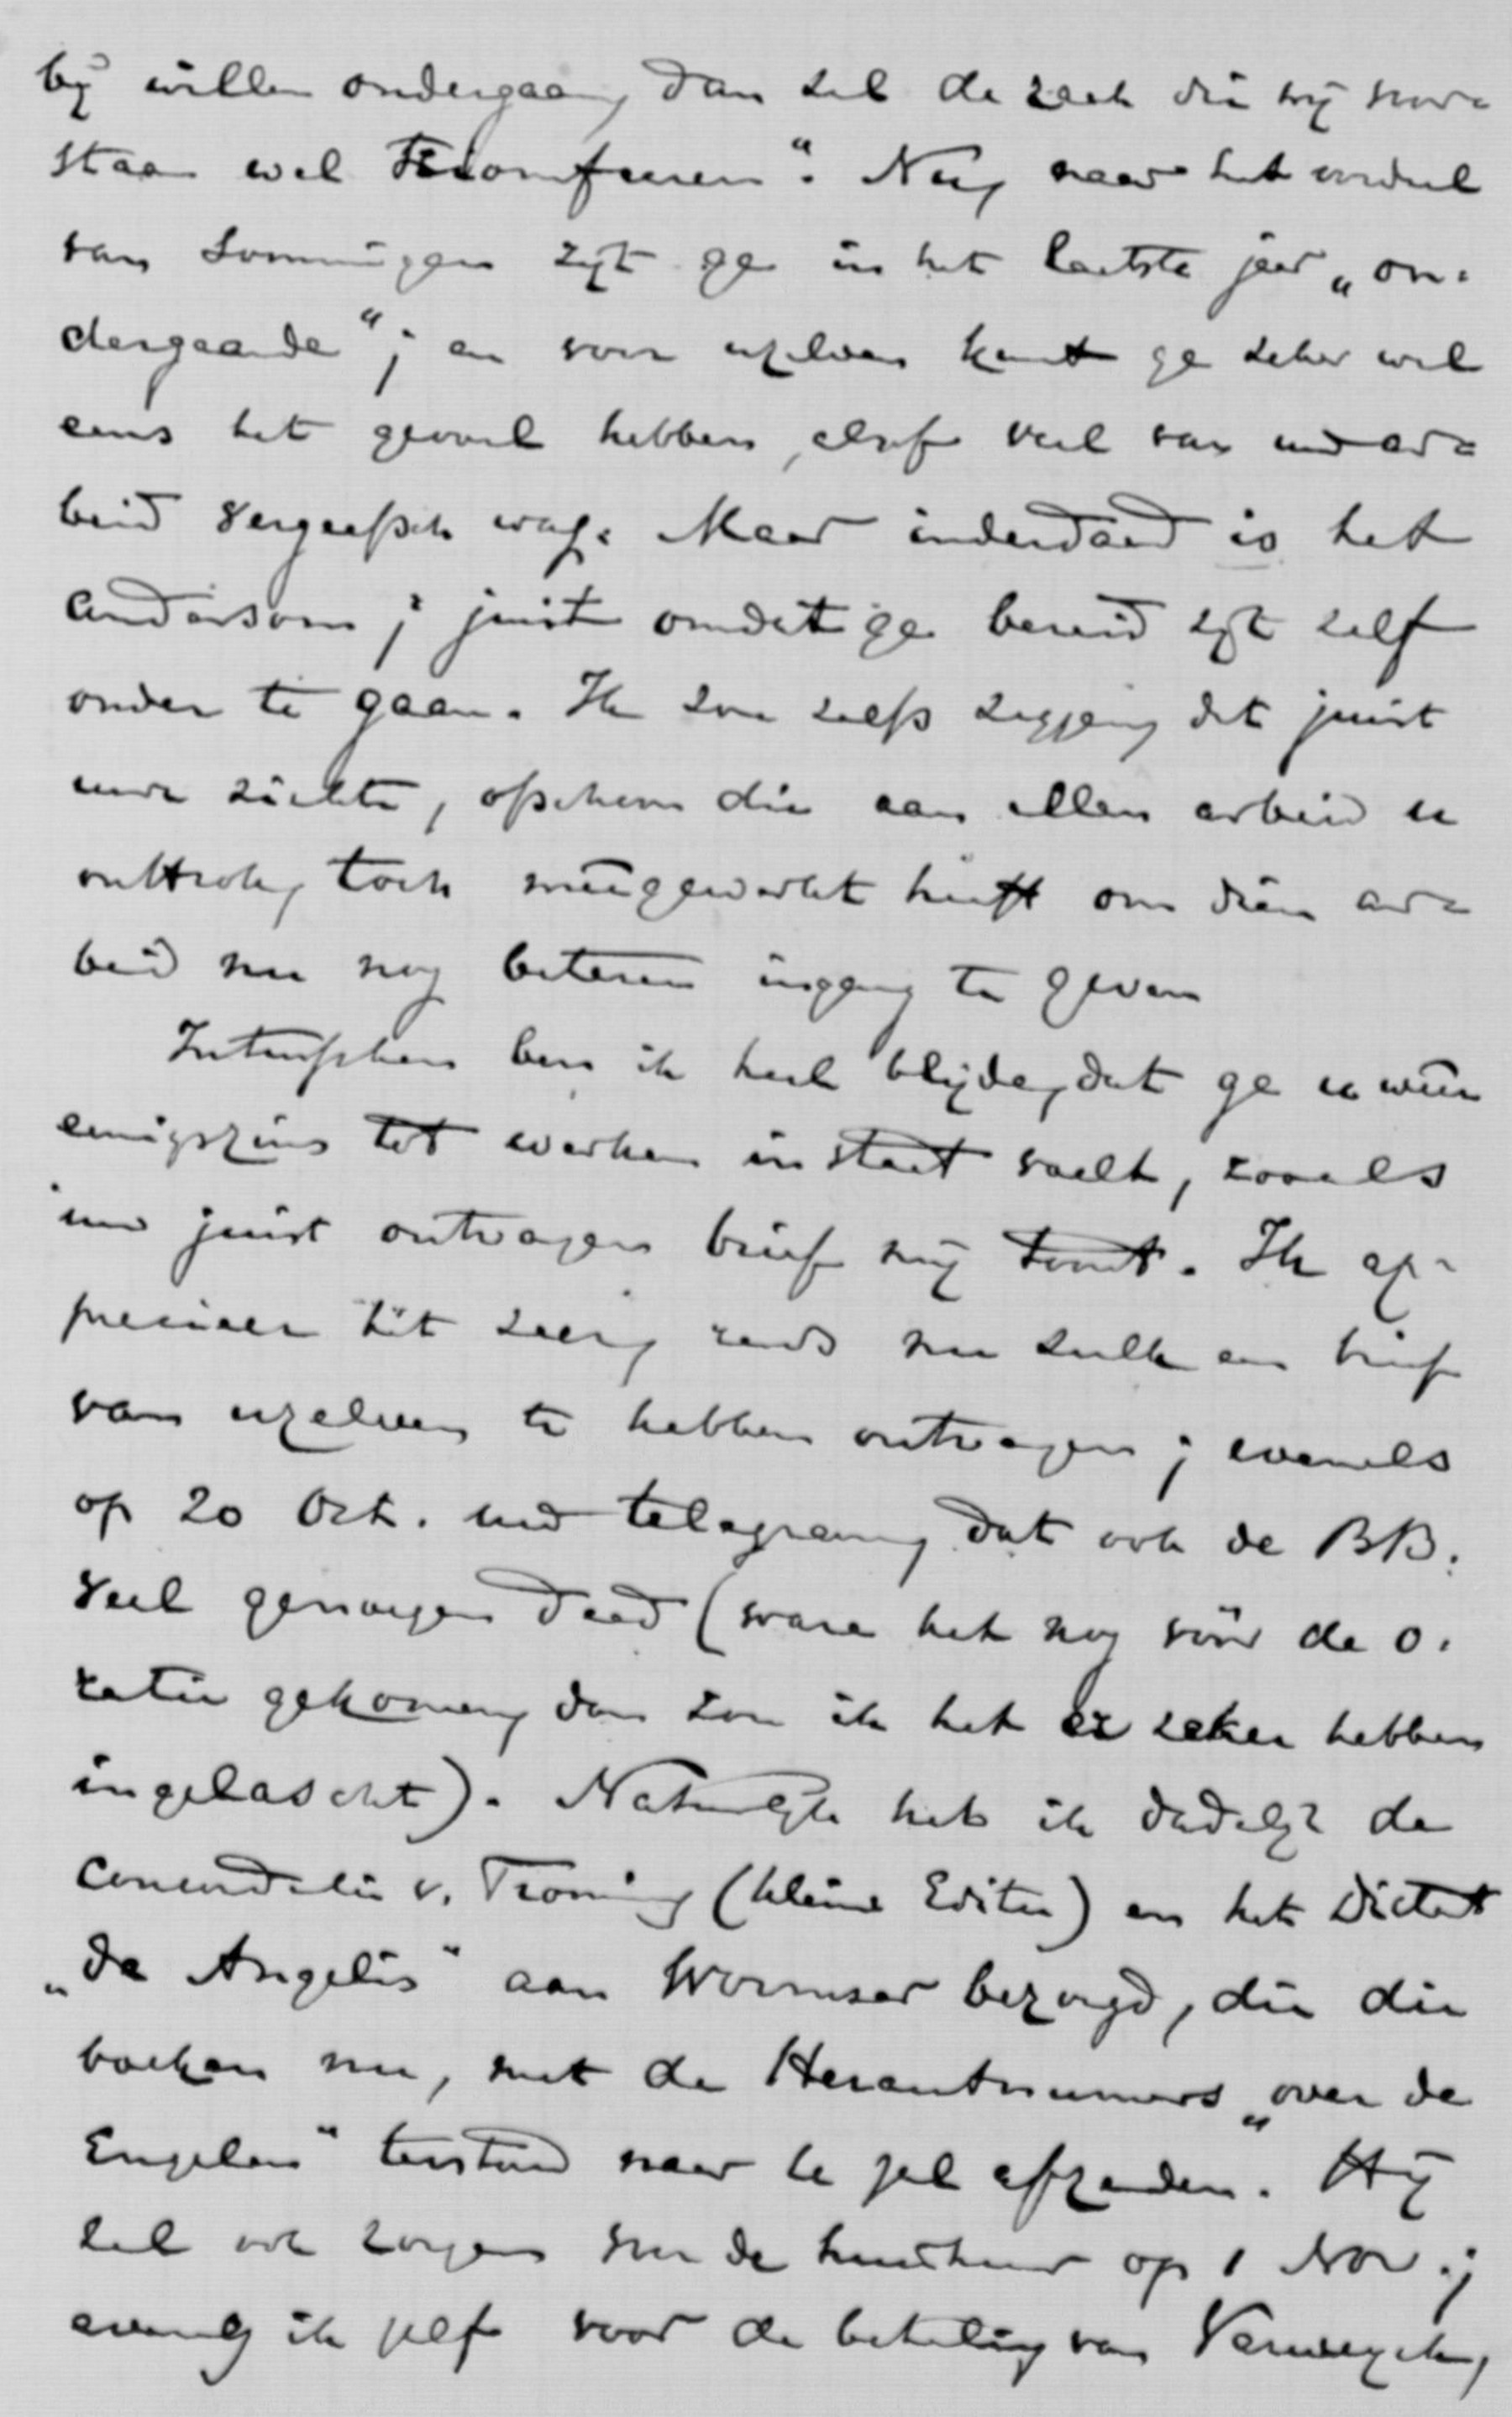 bij willen ondergaan, dan zal de zaak die wij voor-
staan wel triomfeeren“. Nu, naar het oordeel
van sommigen zijt ge in het laatste jaar „on-
dergaande“; en voor uzelven kunt ge zeker wel
eens het gevoel hebben, alsof veel van uw ar-
beid vergeefsch was. Maar inderdaad is het
andersom; juist omdat ge bereid zijt zelf
onder te gaan. Ik zou zelfs zeggen, dat juist
uwe ziekte, ofschoon die aan allen arbeid u
onttrok, toch meegewerkt heeft om dien ar-
beid nu nog beteren ingang te geven
Intusschen ben ik heel blijde, dat ge u weer
eenigszins tot werken in staat voelt, zooals
uw juist ontvangen brief mij toont. Ik ap-
precieer het zeer, reeds nu zulk een brief
van uzelven te hebben ontvangen; evenals
op 20 Oct. uw telegram, dat ook de BB.
veel genoegen deed (ware het nog vóór de o-
ratie gekomen, dan zou ik het er zeker hebben
ingelascht). Natuurlijk heb ik dadelijk de
Concordantie v. Tromm (kleine Editie) en het Dictaat
„de Angelis“ aan Wormser bezorgd, die die
boeken nu, met de Herautnummers „over de
Engelen“ terstond naar u zal afzenden. Hij
zal ook zorgen voor de huishuur op 1 Nov.;
evenals ik zelf voor de betaling van